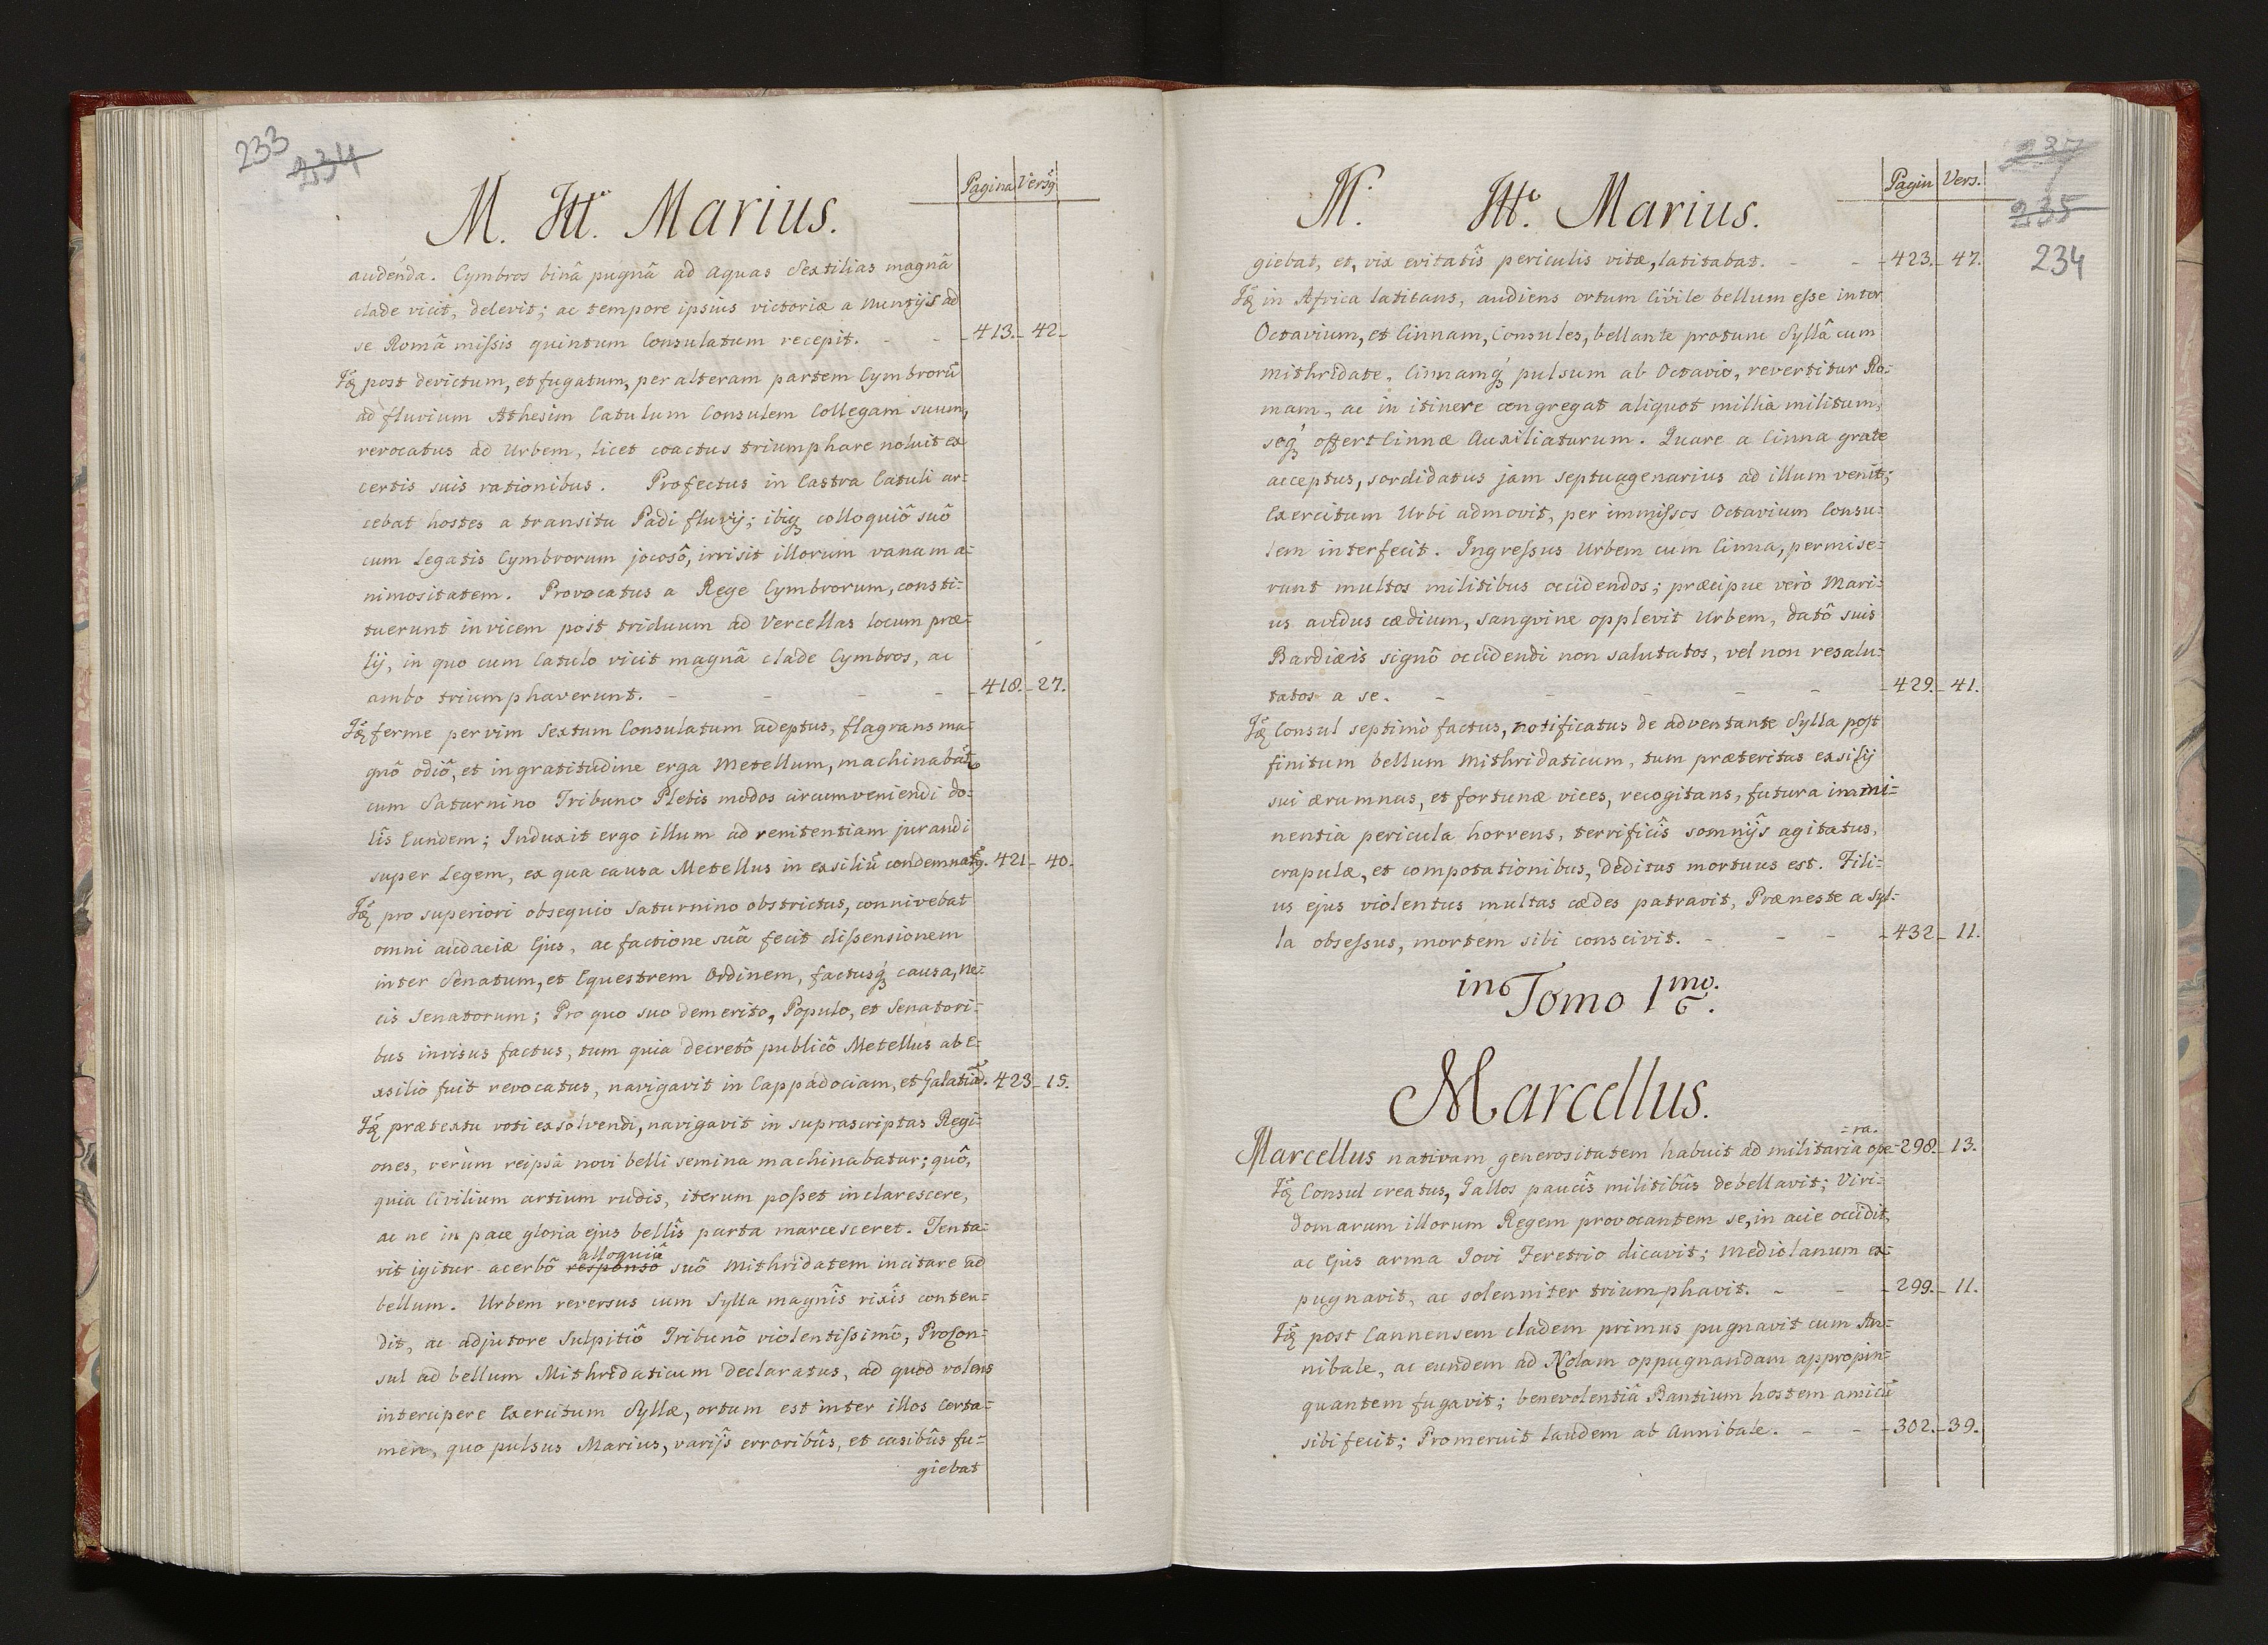 233
234
Pagina Versq̃
M. Ittẽ. Marius.
audenda. Cymbros binâ pugnâ ad Aquas Sextilias magnâ
clade vicit, delevit; ac tempore ipsius victoriæ a nuntijs ad
se Româ missis quintum Consulatum recepit. - - 413. 42
Itẽ post devictum, et fugatum, per alteram partem Cymbrorũ
ad fluvium Athesim Catulum Consulem Collegam suum,
revocatus ad Urbem, licet coactus triumphare noluit ex
certis suis rationibus. Profectus in Castra Catuli ar=
cebat hostes a transitu Padi fluvij; ibiq; colloquiô suô
cum Legatis Cymbrorum jocosô, irrisit illorum vanam a=
nimositatem. Provocatus a Rege Cymbrorum, consti=
tuerunt invicem post triduum ad Vercellas locum præ=
lij, in quo cum Catulo vicit magnâ clade Cymbros, ac
ambo triumphaverunt. - - - - 418. 27.
Itẽ ferme per vim Sextum Consulatum adeptus, flagrans ma=
gnô odiô, et ingratitudine erga Metellum, machinabatr
cum Saturnino Tribuno Plebis modos circumveniendi do=
lîs Eundem; Induxit ergo illum ad renitentiam jurandi
super Legem, ex qua causa Metellus in exsiliũ condemnatq̃. 421 40.
Itẽ pro superiori obsequio Saturnino obstrictus, connivebat
omni audaciæ Ejus, ac factione suâ fecit dissensionem
inter Senatum, et Equestrem Ordinem, factusq́; causa, ne=
cis Senatorum; Pro quo suo demerito, Populo, et Senatori=
bus invisus factus, tum quia decretô publicô Metellus ab e=
xsilio fuit revocatus, navigavit in Cappadociam, et Galatiã. 423 15.
Itẽ prætextu voti exsolvendi, navigavit in suprascriptas Regi=
ones, verùm reipsâ novi belli semina machinabatur; quô,
quia Civilium artium rudis, iterum posset inclarescere,
ac ne in pace gloria ejus bellîs parta marcesceret. Tenta=
alloquiô
vit igitur acerbô responsô suô Mithridatem incitare ad
bellum. Urbem reversus cum Sylla magnîs rixîs conten=
dit, ac adjutore Sulpitiô Tribunô violentissimô, Procon=
sul ad bellum Mithridaticum declaratus, ad quod volens
intercipere Exercitum Syllæ, ortum est inter illos Certa=
men, quo pulsus Marius, varijs erroribûs, et casibûs fu=
giebat
237
235
234
Pagin Vers.
M. Ittẽ. Marius.
giebat, et, vix evitatîs periculis vitæ, latitabat. - - 423. 47.
Itẽ in Africa latitans, audiens ortum Civile bellum esse inter
Octavium, et Cinnam, Consules, bellante protunc Syllâ cum
Mithridate, Cinnamq́; pulsum ab Octavio, revertitur Ro=
mam, ac in itinere congregat aliquot millia militum,
seq́; offert Cinnæ Auxiliaturum. Quare a Cinna grate
acceptus, sordidatus jam septuagenarius ad illum venit;
Exercitum Urbi admovit, per immissos Octavium Consu=
lem interfecit. Ingressus Urbem cum Cinna, permise=
runt multos militibus occidendos; præcipue verò Mari=
us avidus cædium, sangvine opplevit Urbem, datô suis
Bardiæis signô occidendi non salutatos, vel non resalu=
tatos a se. - - - - - 429. 41.
Itẽ Consul septimò factus, notificatus de adventante Sylla post
finitum bellum Mithridaticum, tum præteritas exsilij
sui ærumnas, et fortunæ vices, recogitans, futura immi=
nentia pericula horrens, terrificîs somnijs agitatus,
crapulæ, et compotationibus, deditus mortuus est. Fili=
us ejus violentus multas cædes patravit, Præneste a Syl=
la obsessus, mortem sibi conscivit. - - - 432 11.
in Tomo 1mo.
Marcellus.
=ra.
Marcellus nativam generositatem habuit ad militaria ope= 298. 13.
Itẽ Consul creatus, Gallos paucîs militibûs debellavit; Viri=
domarum illorum Regem provocantem se, in acie occidit,
ac Ejus arma Jovi Feretrio dicavit; Mediolanum ex=
pugnavit, ac solenniter triumphavit. - - 299. 11.
Itẽ post Cannensem cladem primus pugnavit cum An=
nibale, ac eundem ad Nolam oppugnandam appropin=
quantem fugavit; benevolentiâ Bantium hostem amicũ
sibi fecit; Promeruit laudem ab Annibale. - - 302. 39.